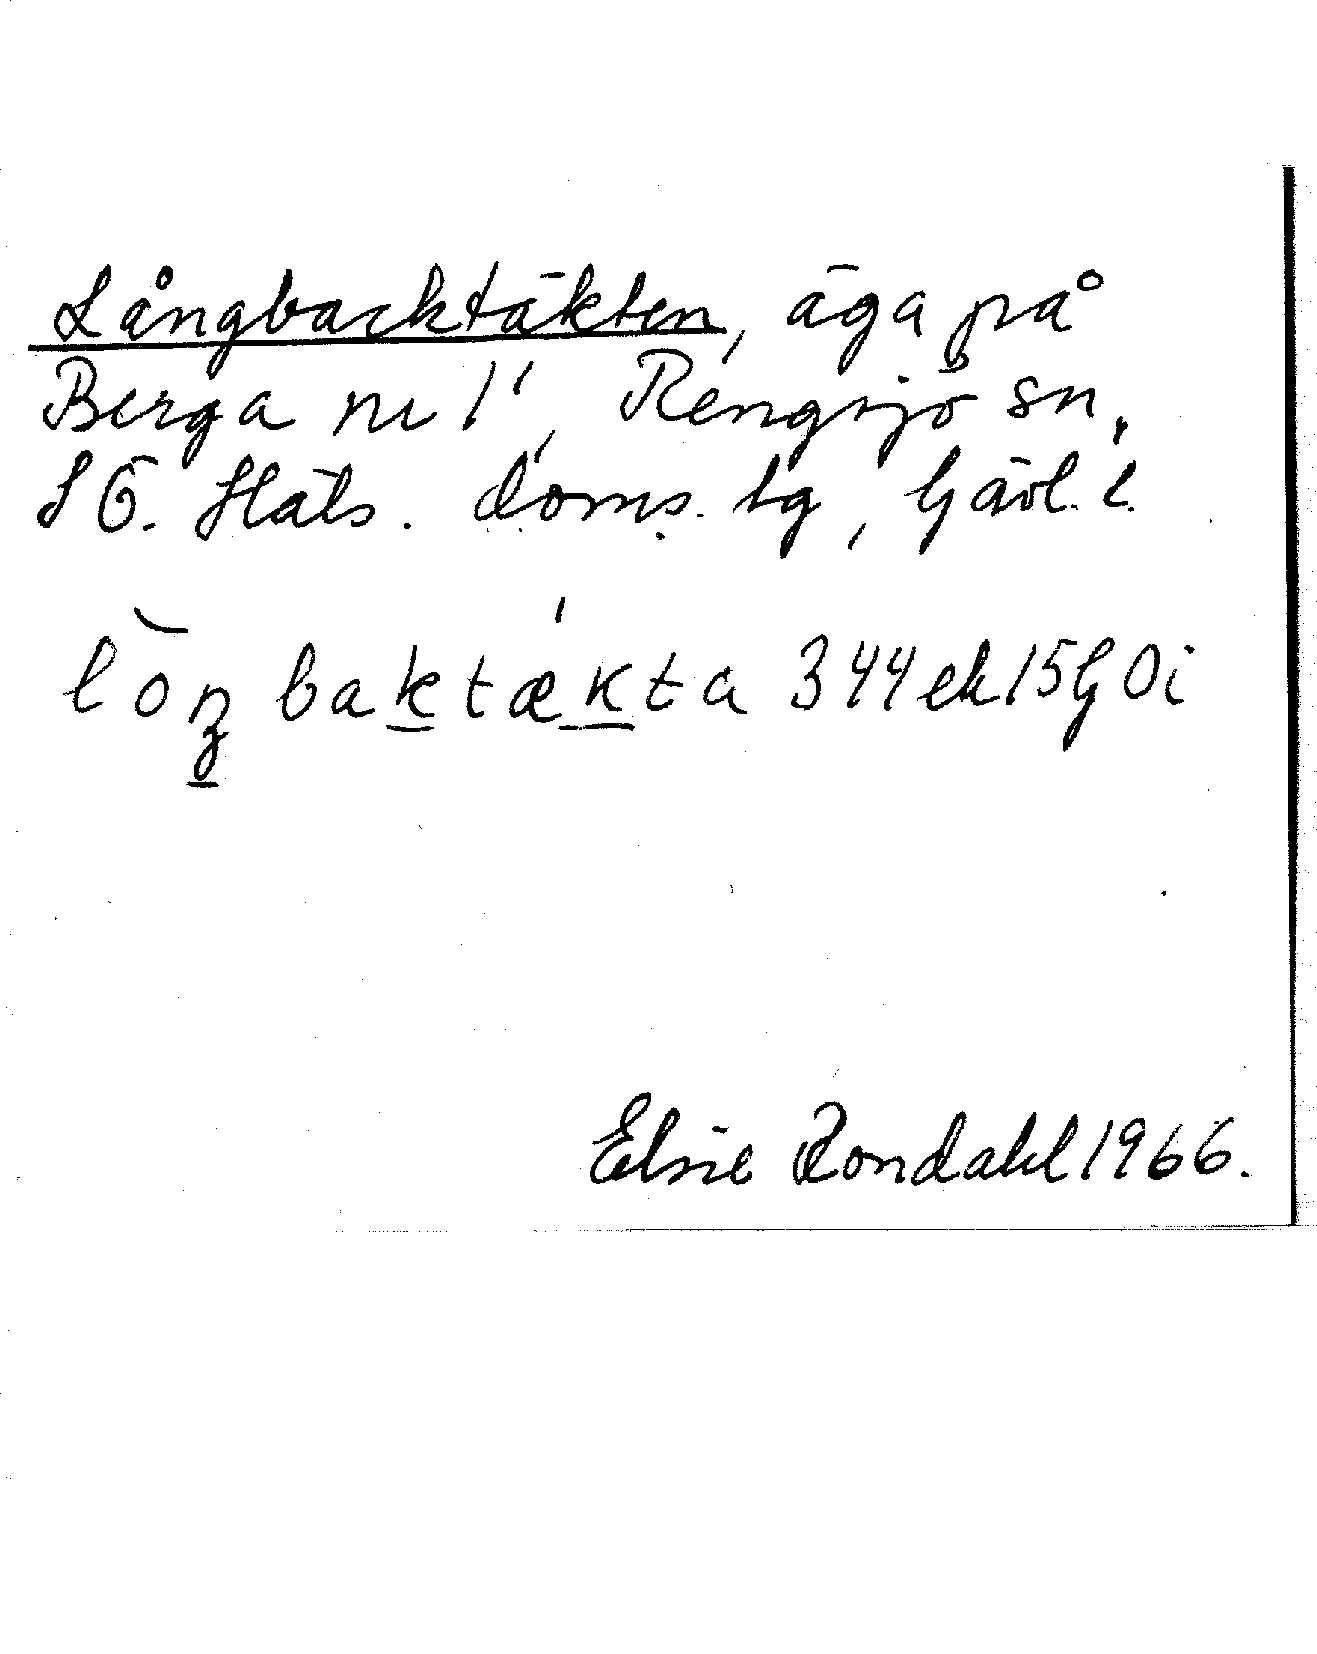 Långbacktäkten, äga på
Berga nr 1, Rengsjö sn,
S Ö. Häls. doms. tg, Gävl. l.
lòŋbaktækta 344ek15G0i
Elsie Rondahl 1966.